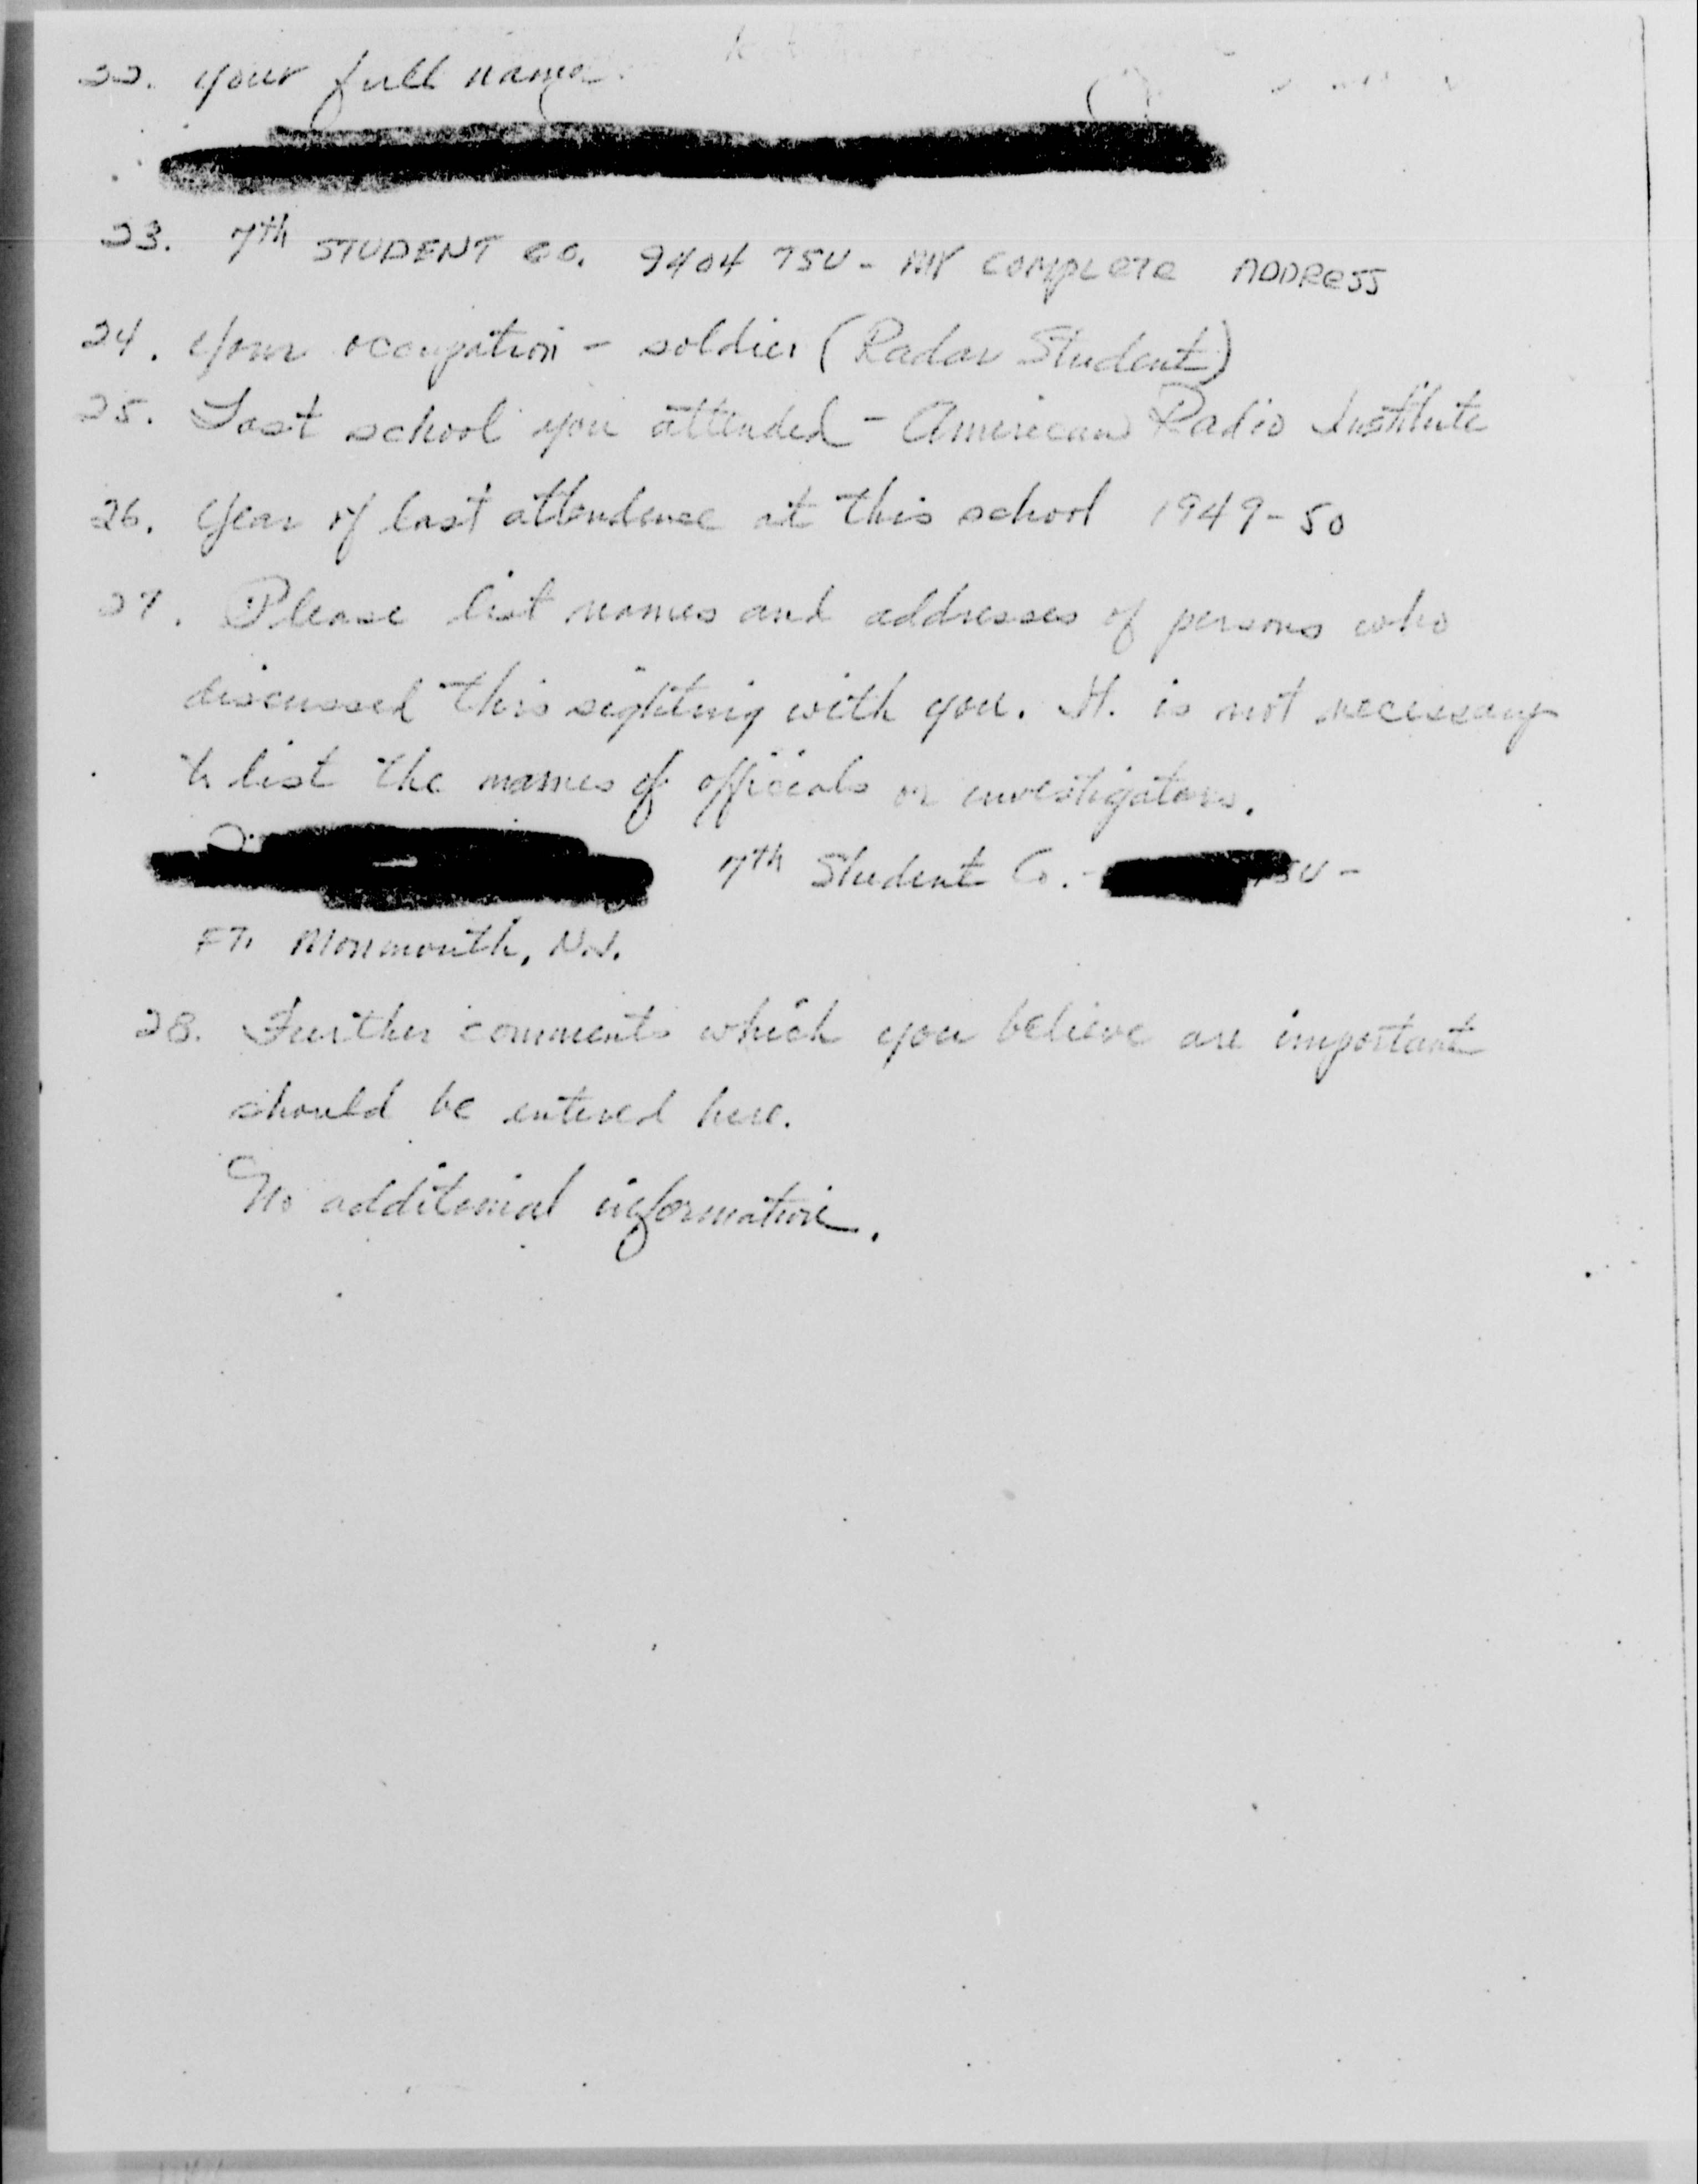 22. Your full name.
23. 7th STUDENT CO. 9404 TSU - MY COMPLETE ADDRESS
24. Your occupation - soldier (Radar Student)
25. Last school you attended - American Radio Institute
26. Year of last attendence at this school 1949-50
27. Please list names and addresses of persons who
discussed this sighting with you. It. is not necessary
to list the names of officials or investigators.
7th Student Co. - TSU -
FT. Monmouth, N.J.
28. Further comments which you believe are important
should be entered here.
No additonial information.